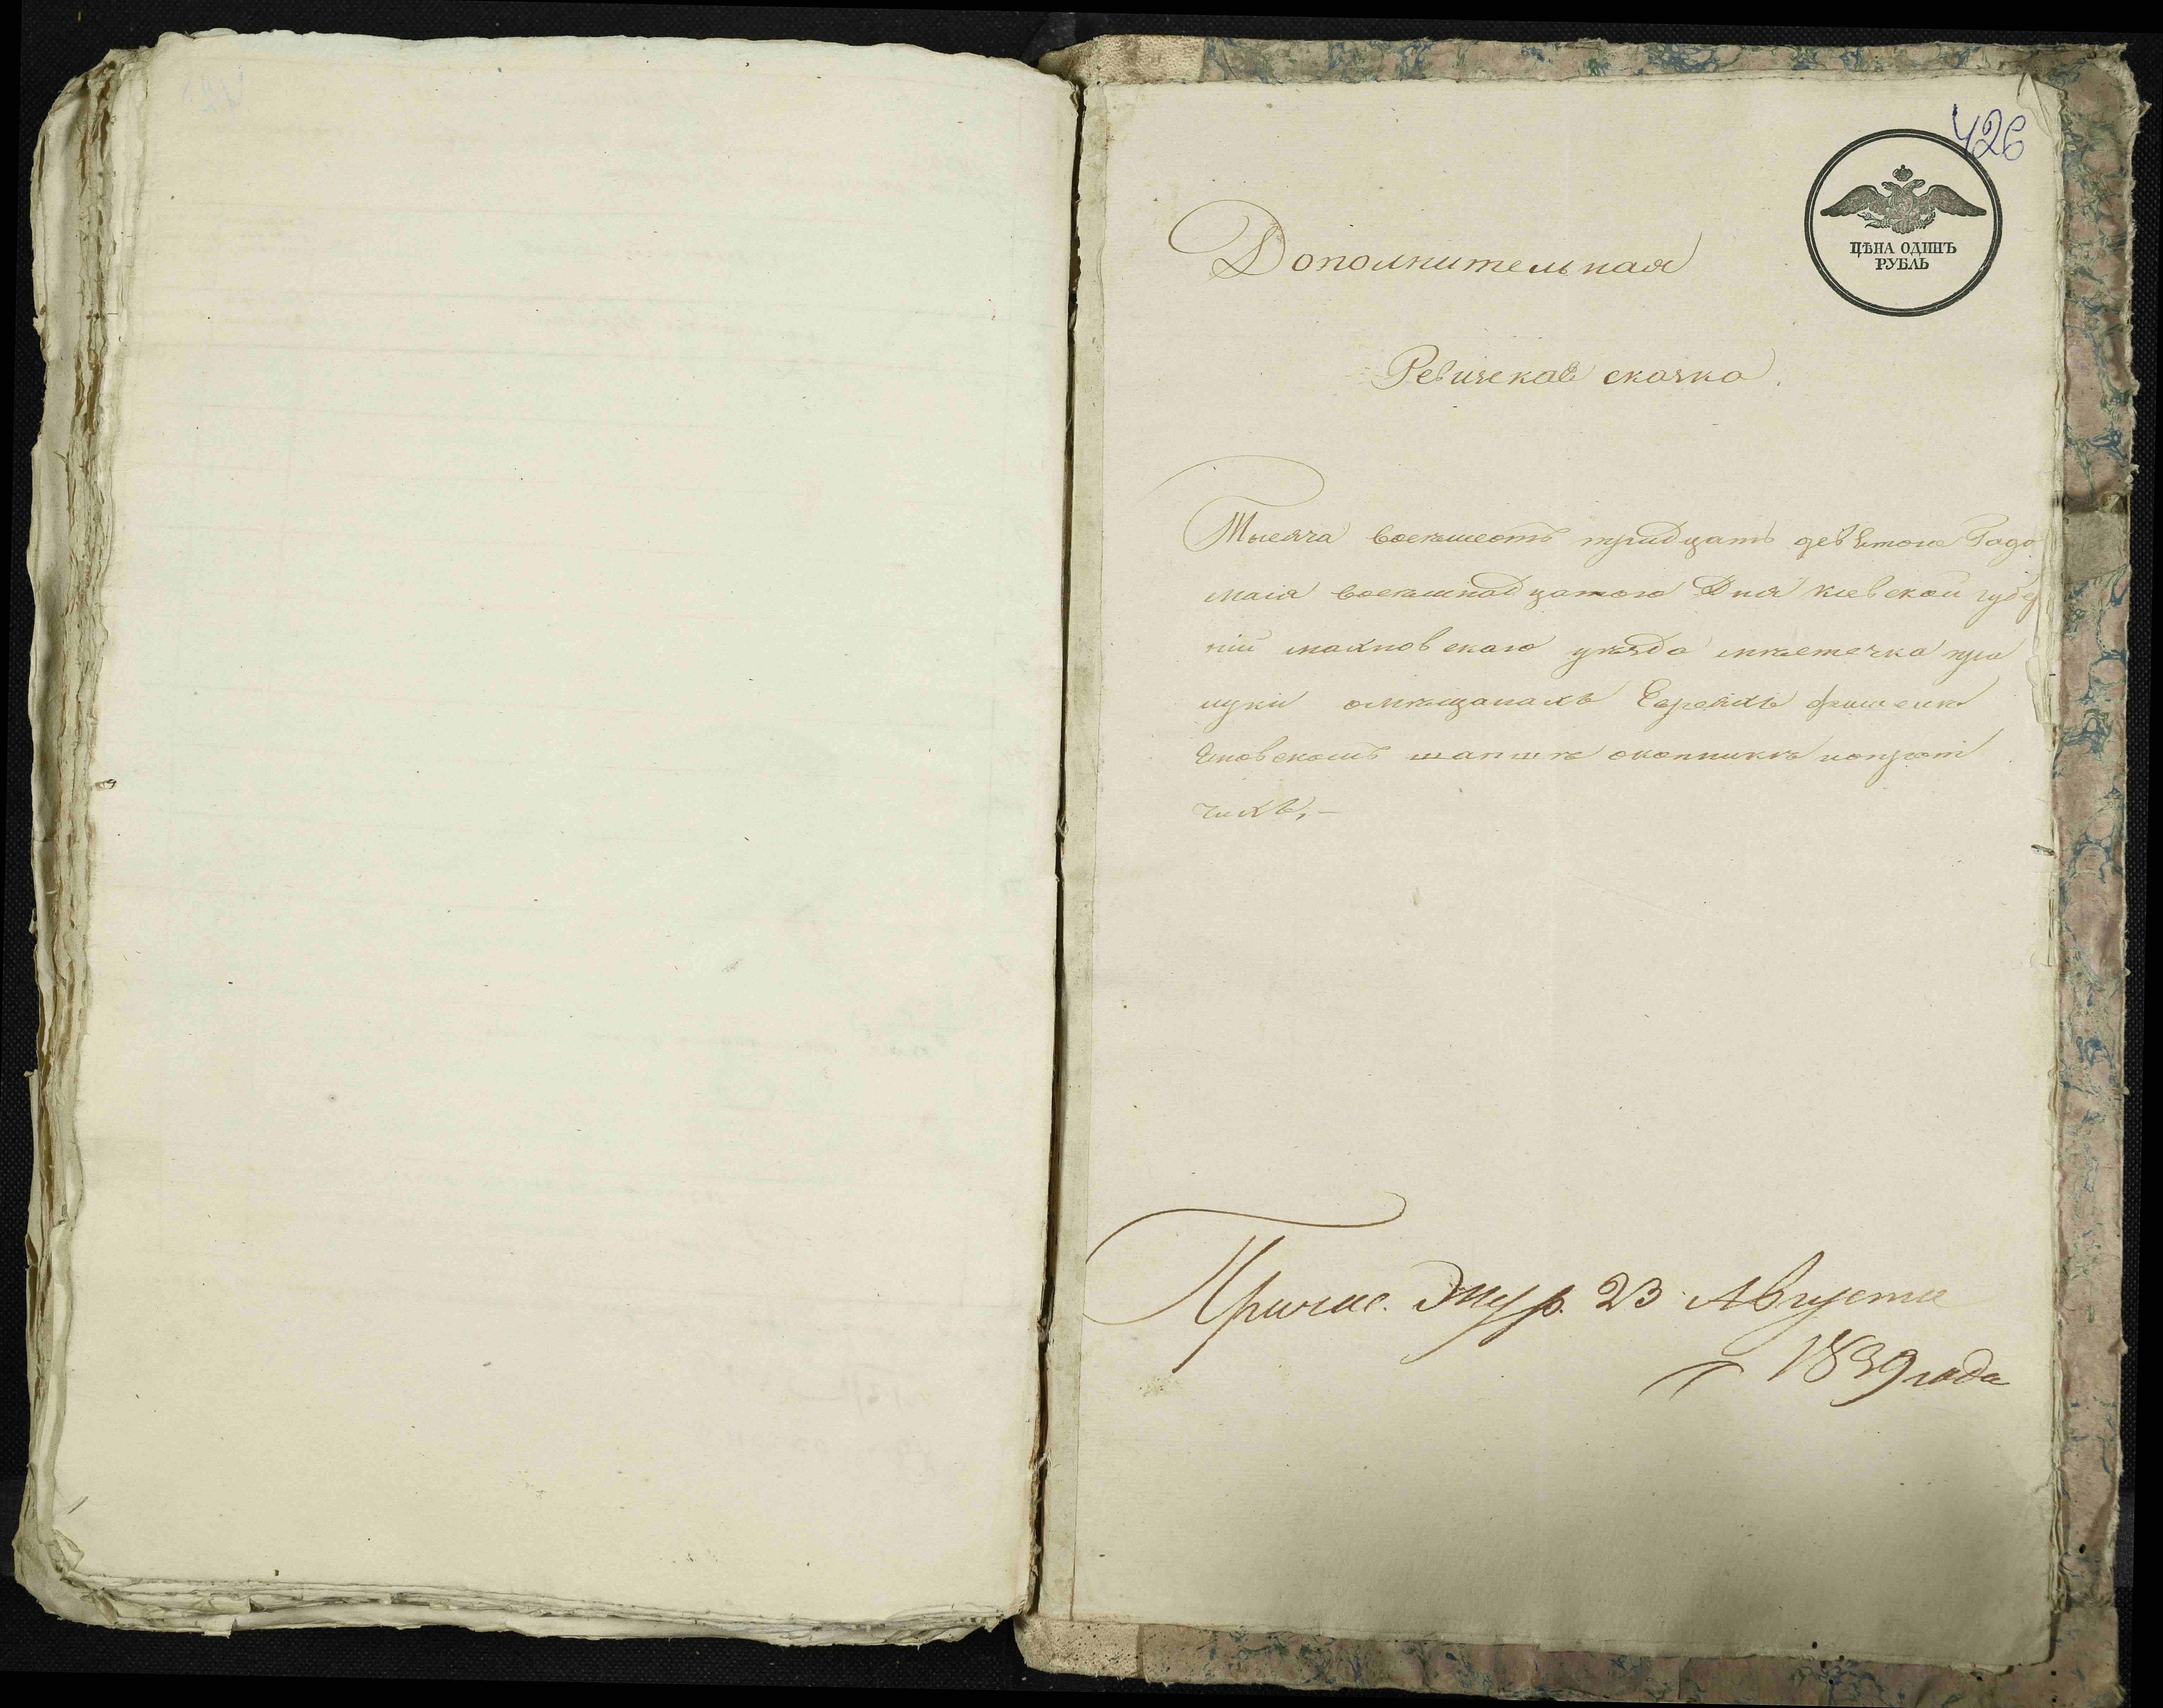 426
ЦѢНА ОДИНЪ
РУБЛЬ
Дополнительная
Ревизская сказка.
Тысяча восемьсотъ тридцать девятого Года
маія восемнадцатого Дня киевской губер
ніи махновскаго уезда местечка при
луки омещанахъ Евреяхъ
окопникъ ипрот
чихъ, —
Причис. Жур. 23 Августа
1839 года